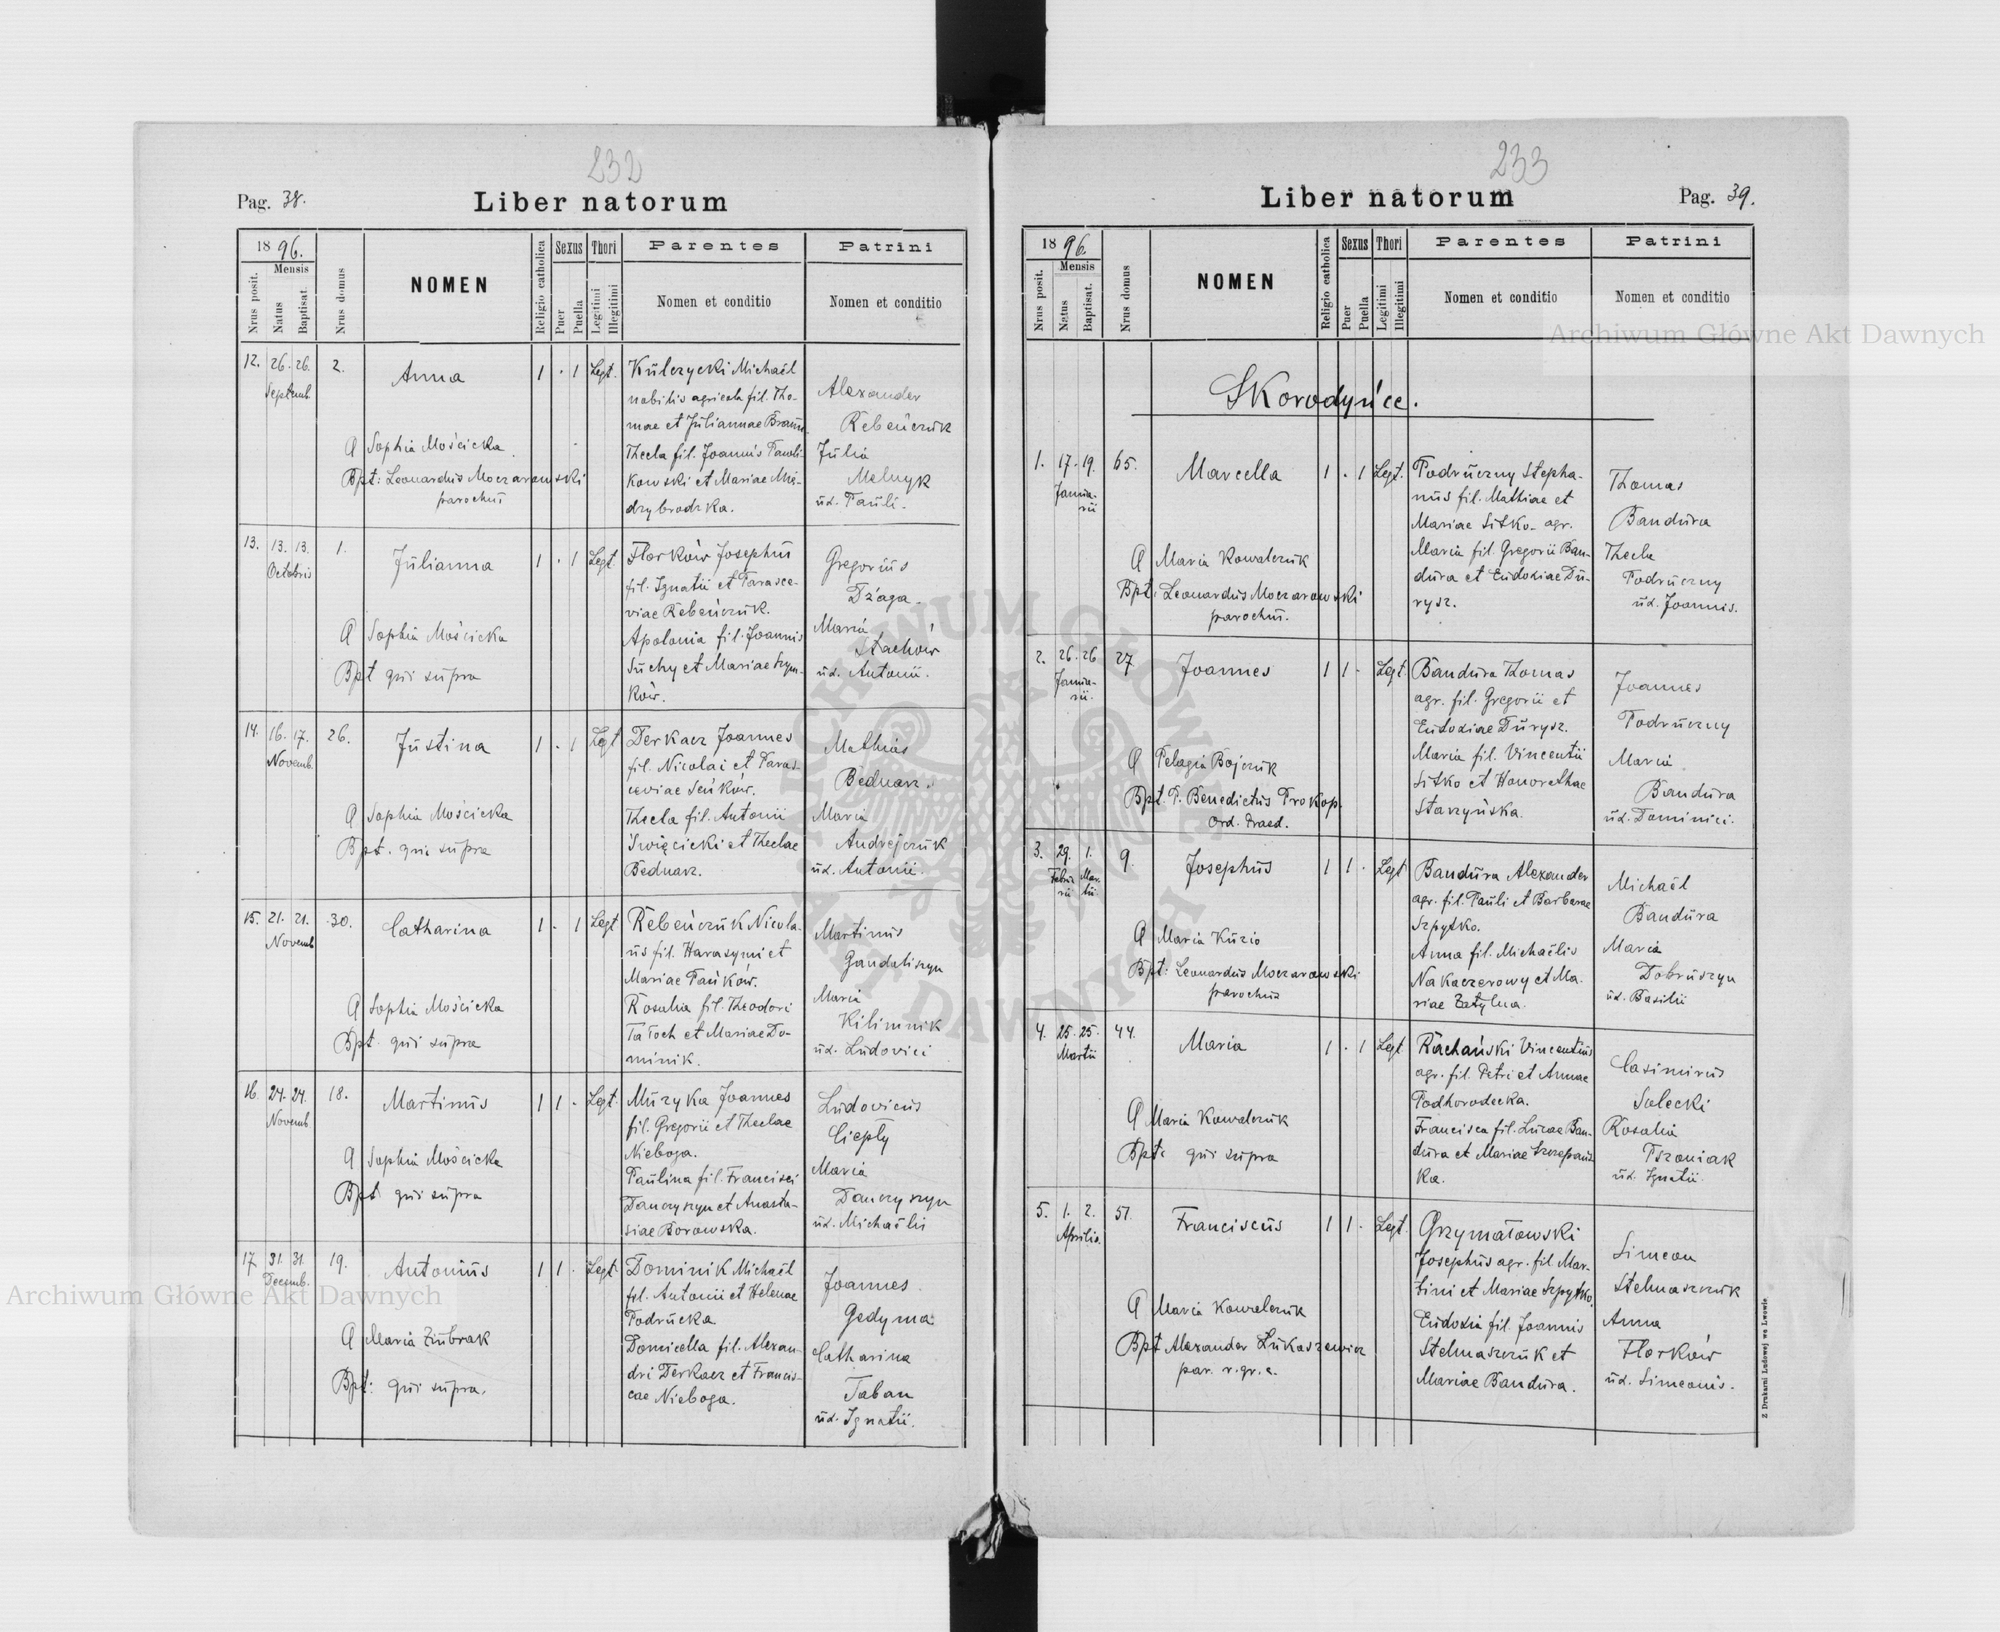 232
Pag. 38.
Liber natorum
1896.
Nrus posit.
Mensis
Natus
Baptisat.
Nrus domus
NOMEN
Religio catholica
Sexus
Puer
Puella
Thori
Legitimi
Illegitimi
Parentes
Nomen et conditio
Patrini
Nomen et conditio
12. 26. 26. 2. Anna 1 . 1 Legt.
Septemb.
O Sophia Mościcka.
Bpt: Leonardus Moczarowski
parochus
Kulczycki Michaël
nobilis agricola fil. Tho-
mae et Juliannae
Thecla fil. Joannis Pawli-
kowski et Mariae Mię-
dzybrodzka.
Alexander
Rebeńczuk
Julia
Melnyk
ux. Pauli.
13. 13. 13. 1. Julianna 1 . 1 Legt.
Octobris
O Sophia Mościcka
Bpt qui supra
Florków Josephus
fil. Ignatii et Parasce-
viae Rebeńczuk.
Apolonia fil. Joannis
Suchy et Mariae Szym-
ków.
Gregorius
Dżaga.
Maria
Stachów
ux. Antonii.
14. 16. 17. 26. Justina 1 . 1 Legt
Novemb.
O Sophia Mościcka
Bpt. qui supra
Derkacz Joannes
fil. Nicolai et Paras-
ceviae Seńków.
Thecla fil. Antonii
Święcicki et Theclae
Bednarz.
Mathias
Bednarz.
Maria
Andrejczuk
ux. Antonii.
15. 21. 21. 30. Catharina 1 . 1 Legt
Novemb
O Sophia Mościcka
Bpt. qui supra
Rebeńczuk Nicola-
us fil. Harasymi et
Mariae Pańków.
Rosalia fil. Theodori
Tatoch et Mariae Do-
minik.
Martinus
Gandaliszyn
Maria
Kilimnik
ux. Ludovici
16. 24. 24. 18. Martinus 1 1 . Legt.
Novemb
O Sophia Mościcka
Bpt qui supra
Muzyka Joannes
fil. Gregorii et Theclae
Nieboga.
Paulina fil. Francisci
Danczyszyn et Anasta-
siae Borowska.
Ludovicus
Ciepły
Maria
Danczyszyn
ux. Michaëlis
17 31. 31. 19. Antonius 1 1 . Legt
Decemb.
O Maria Ziubrak
Bpt: qui supra.
Dominik Michaël
fil. Antonii et Helenae
Podrucka
Domicella fil. Alexan-
dri Derkacz et Francis-
cae Nieboga.
Joannes
Gedyma
Catharina
Taban
ux. Ignatii.
233
Liber natorum
Pag. 39.
1896.
Nrus posit.
Mensis
Natus
Baptisat.
Nrus domus
NOMEN
Religio catholica
Sexus
Puer
Puella
Thori
Legitimi
Illegitimi
Parentes
Nomen et conditio
Patrini
Nomen et conditio
Skorodyńce.
1. 17. 19. 65. Marcella 1 . 1 Legt.
Janua-
rii
O Maria Kowalczuk
Bpt: Leonardus Moczarowski
parochus.
Podruczny Stepha-
nus fil. Mathiae et
Mariae Sitko. agr.
Maria fil. Gregorii Ban-
dura et Eudoxiae Du-
rysz.
Thomas
Bandura
Thecla
Podruczny
ux. Joannis.
2. 26. 26 27 Joannes 1 1 . Legt.
Janua-
rii.
O Pelagia Bojczuk
Bpt. P. Benedictus Prokop.
Ord. Praed.
Bandura Thomas
agr. fil. Gregorii et
Eudoxiae Durysz.
Maria fil. Vincentii
Sitko et Honorethae
Starzyńska.
Joannes
Podruczny
Maria
Bandura
ux. Dominici.
3. 29. 1. 9. Josephus 1 1 . Legt
Febru-
rii
Mar-
tii.
O Maria Kuzio
Bpt: Leonardus Moczarowski
parochus
Bandura Alexander
agr. fil. Pauli et Barbarae
Szpytko.
Anna fil. Michaëlis
Nakaczerowy et Ma-
riae Zatylna.
Michaël
Bandura
Maria
Dobruszyn
ux. Basilii
4. 25. 25. 44. Maria 1 . 1 Legt
Martii
O Maria Kowalczuk
Bpt: qui supra
Rachański Vincentius
agr. fil. Petri et Annae
Podhorodecka.
Francisca fil. Lucae Ban-
dura et Mariae Szczepańs
ka.
Casimirus
Salecki
Rosalia
Pszoniak
ux. Ignatii.
5. 1. 2. 51. Franciscus 1 1 . Legt.
Aprilis.
O Maria Kowalczuk
Bpt Alexander Łukaszewicz
par. r. gr. c.
Grzymałowski
Josephus agr. fil. Mar-
tini et Mariae Szpytko.
Eudoxia fil. Joannis
Stelmaszczuk et
Mariae Bandura.
Simeon
Stelmaszczuk
Anna
Florków
ux. Simeonis.
Z Drukarni Ludowej we Lwowie.
Archiwum Główne Akt Dawnych
Archiwum Główne Akt Dawnych
ARCHIWUM GŁÓWNE AKT DAWNYCH